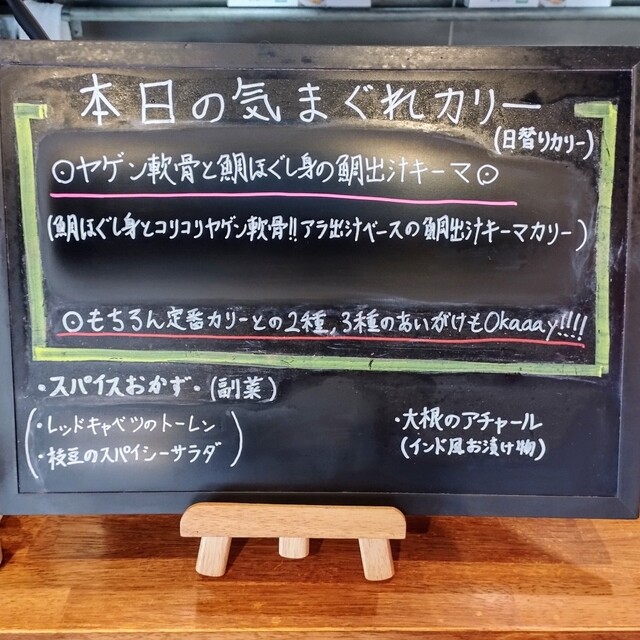 本日の気まぐれカリー
(日替りカリー)
⊙ヤゲン軟骨と鯛ほぐし身の鯛出汁キーマ⊙
(鯛ほぐし身とコリコリヤゲン軟骨!!アラ出汁ベースの鯛出汁キーマカリー)
⊙もちろん定番カリーとの2種,3種のあいがけもOkaaay!!!!
・スパイスおかず・(副菜)
・レッドキャベツのトーレン
・枝豆のスパイシーサラダ
・大根のアチャール
(インド風お漬け物)